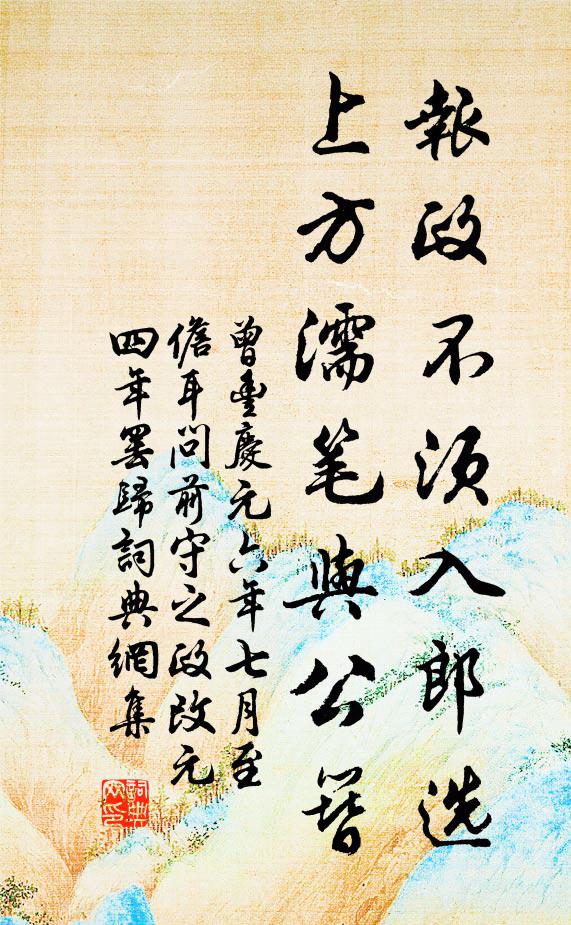 報政不須入郎选
上方濡笔與公簪
曾豊慶元六年七月至
儋耳問前守之政改元
四年罢歸詞典網集
詞典